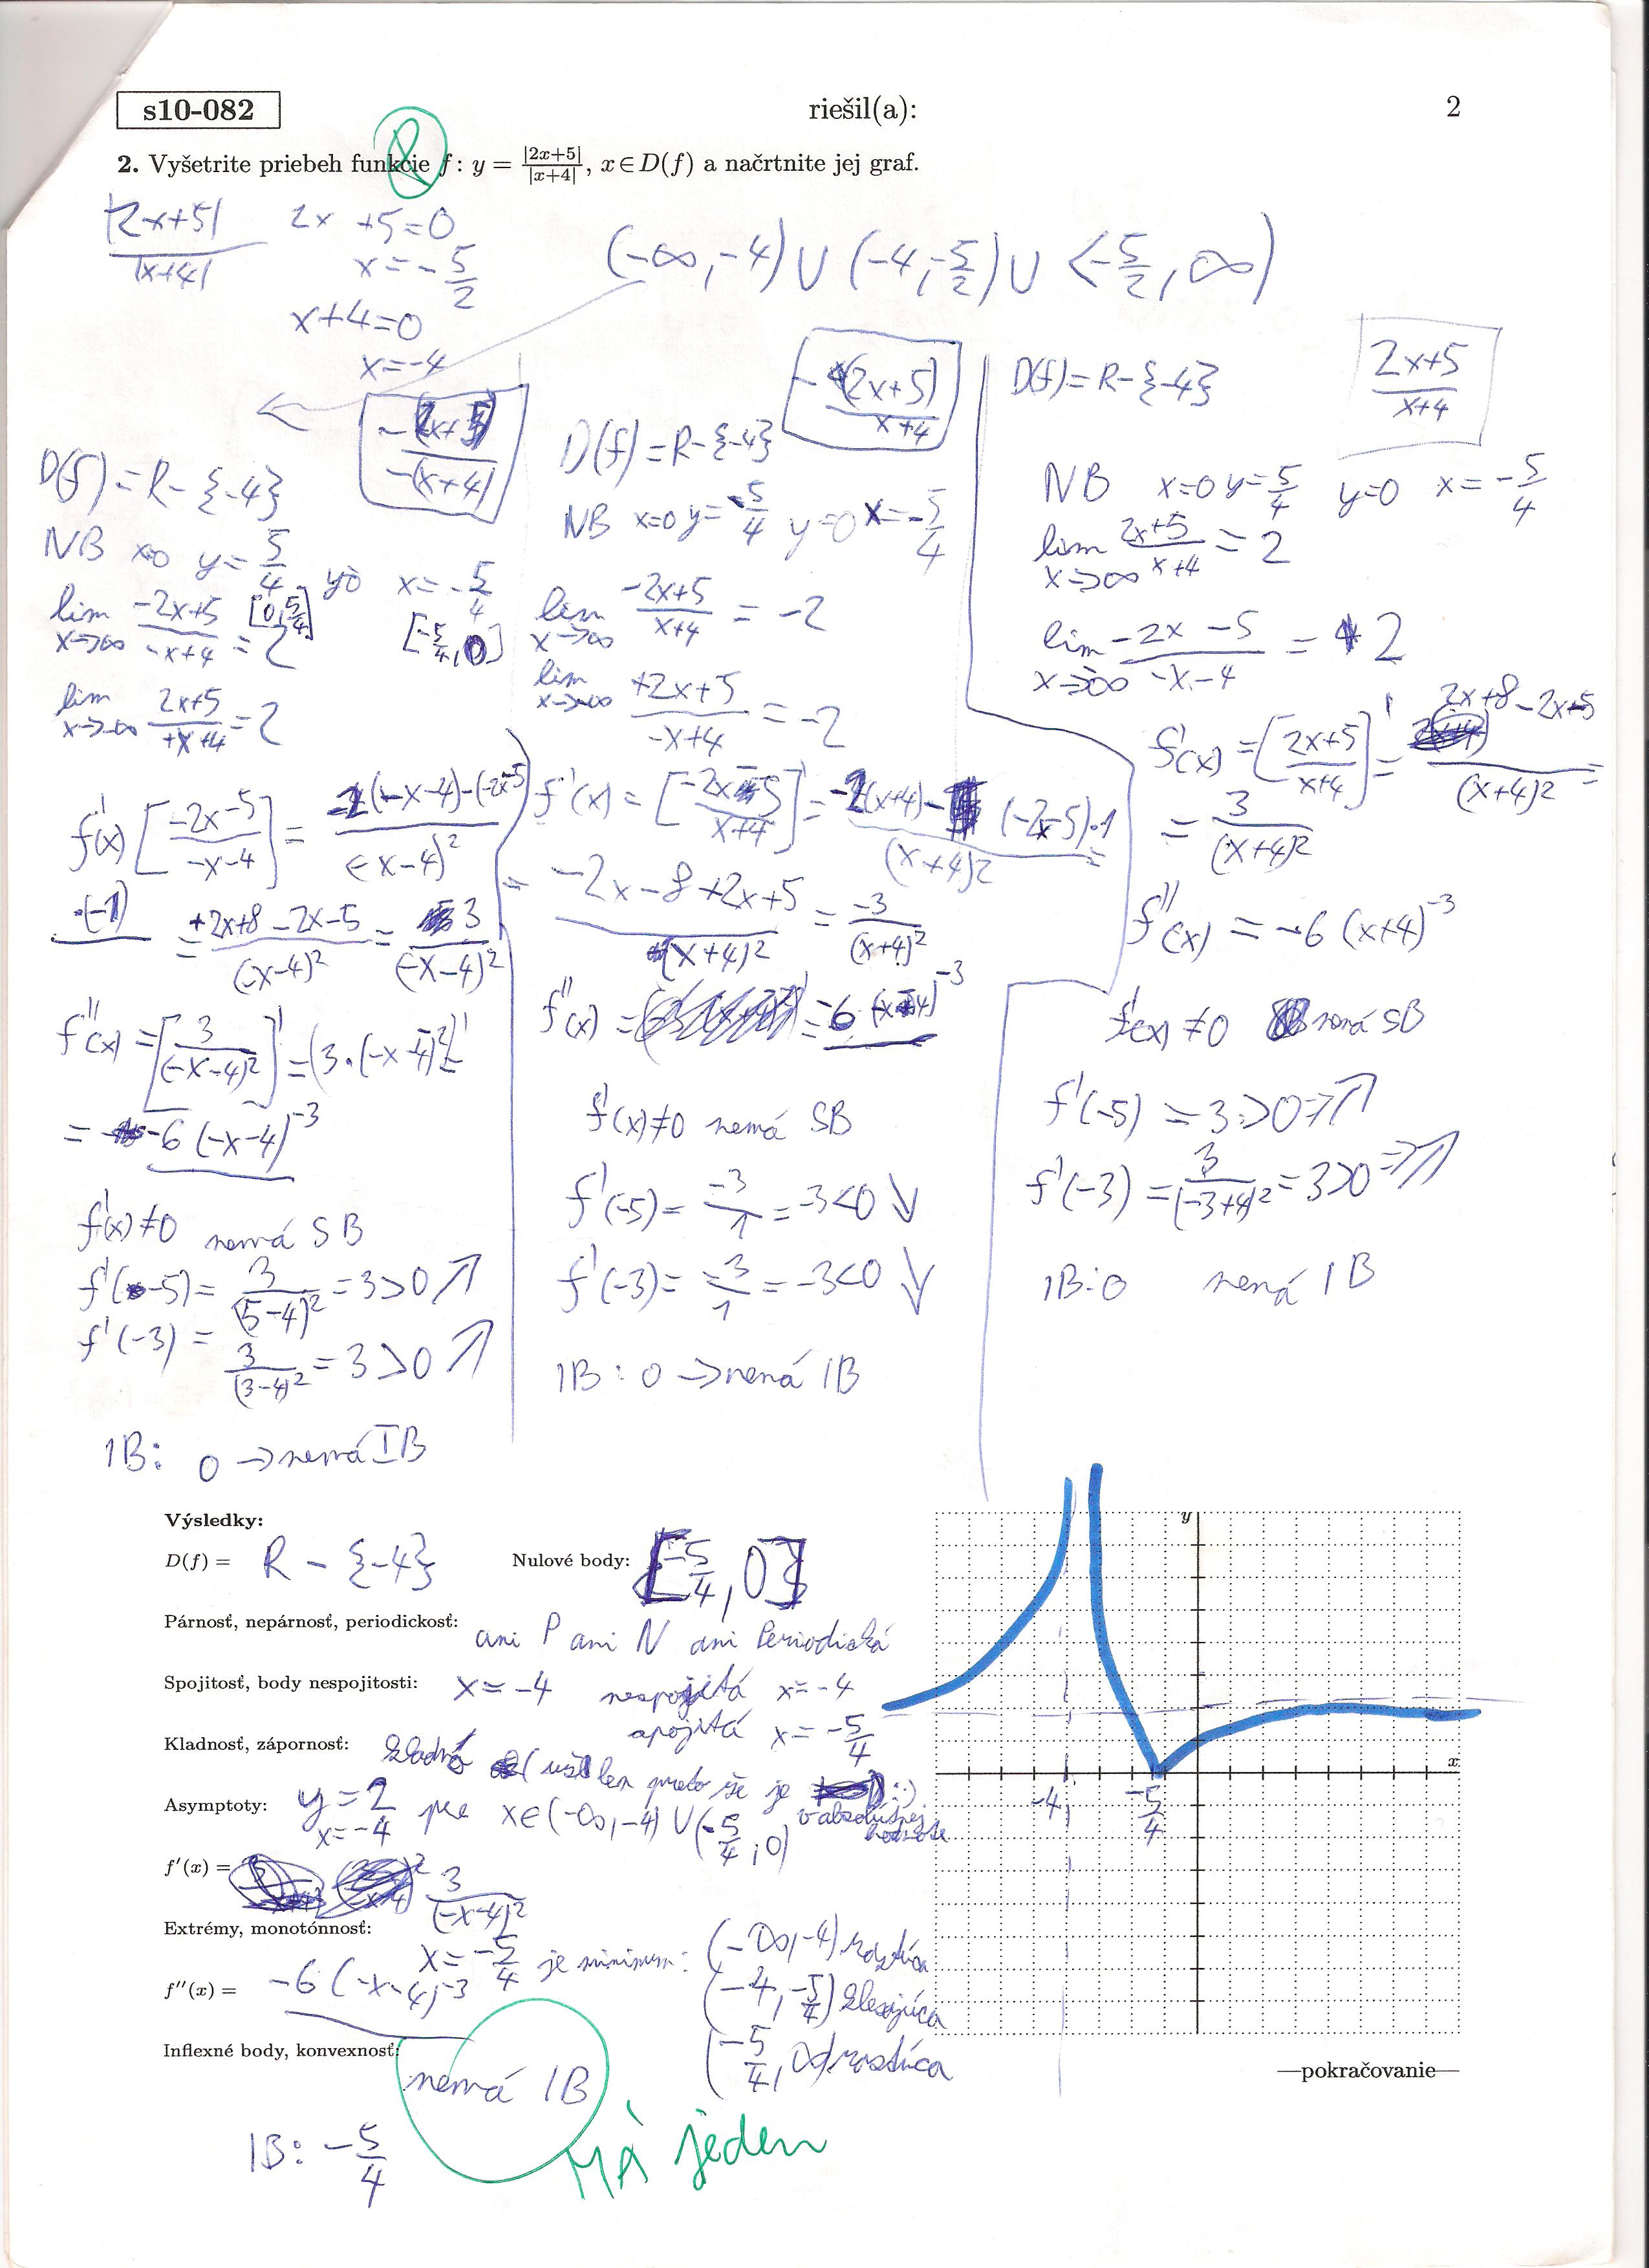 s10-082 riešil(a): 2
2. Vyšetrite priebeh funkcie f: y = |2x+5|/|x+4|, x∈D(f) a načrtnite jej graf.
|2x+5|/|x+4|
2x+5=0
x=-5/2
x+4=0
x=-4
(-∞,-4)∪(-4,-5/2)∪<-5/2,∞)
-(2x+5)/-(x+4)
D(f)=R-{-4}
NB x=0 y=5/4 y=0 x=-5/4
[0,5/4] [-5/4,0]
lim x→∞ -2x+5/-x+4 = 2
lim x→-∞ 2x+5/+x+4 = 2
f'(x) [-2x-5/-x-4]' = -2(-x-4)-(-2x-5)/(-x-4)²
·(-1)
= +2x+8-2x-5/(-x-4)² = 3/(-x-4)²
f''(x) = [3/(-x-4)²]' = (3·(-x-4)⁻²)' =
= -6(-x-4)⁻³
f'(x)≠0 nemá SB
f'(-5) = 3/(5-4)² = 3>0 ↗
f'(-3) = 3/(3-4)² = 3>0 ↗
IB: 0 → nemá IB
-(2x+5)/x+4
D(f)=R-{-4}
NB x=0 y=-5/4 y=0 x=-5/4
lim x→∞ -2x+5/x+4 = -2
lim x→-∞ +2x+5/-x+4 = -2
f'(x) = [-2x-5/x+4]' = -2(x+4)- (-2x-5)·1/(x+4)² =
= -2x-8+2x+5/(x+4)² = -3/(x+4)²
f''(x) = = 6(x+4)⁻³
f'(x)≠0 nemá SB
f'(-5) = -3/1 = -3<0 ↘
f'(-3) = -3/1 = -3<0 ↘
IB: 0 → nemá IB
D(f)=R-{-4} 2x+5/x+4
NB x=0 y=5/4 y=0 x=-5/4
lim x→∞ 2x+5/x+4 = 2
lim x→-∞ -2x-5/-x-4 = 2
f'(x) = [2x+5/x+4]' = 2x+8-2x-5/(x+4)² =
= 3/(x+4)²
f''(x) = -6(x+4)⁻³
f'(x)≠0 nemá SB
f'(-5) = 3>0 ⇒ ↗
f'(-3) = 3/(-3+4)² = 3>0 ⇒ ↗
IB: 0 nemá IB
Výsledky:
D(f) = R - {-4} Nulové body: [-5/4, 0]
Párnosť, nepárnosť, periodickosť: ani P ani N ani Periodická
Spojitosť, body nespojitosti: x=-4 nespojitá x=-4
spojitá x=-5/4
Kladnosť, zápornosť: kladná (už len preto že je :)
v absolútnej hodnote
Asymptoty: y=2 pre x∈(-∞,-4)∪(-5/4;0)
x=-4
f'(x) = 3/(-x-4)²
Extrémy, monotónnosť: x=-5/4 je minimum: (-∞,-4) rastúca
(-4,-5/4) klesajúca
(-5/4,∞) rastúca
f''(x) = -6(-x-4)⁻³
Inflexné body, konvexnosť: nemá IB
IB: -5/4
MÁ jeden
y
x
-4
-5/4
—pokračovanie—